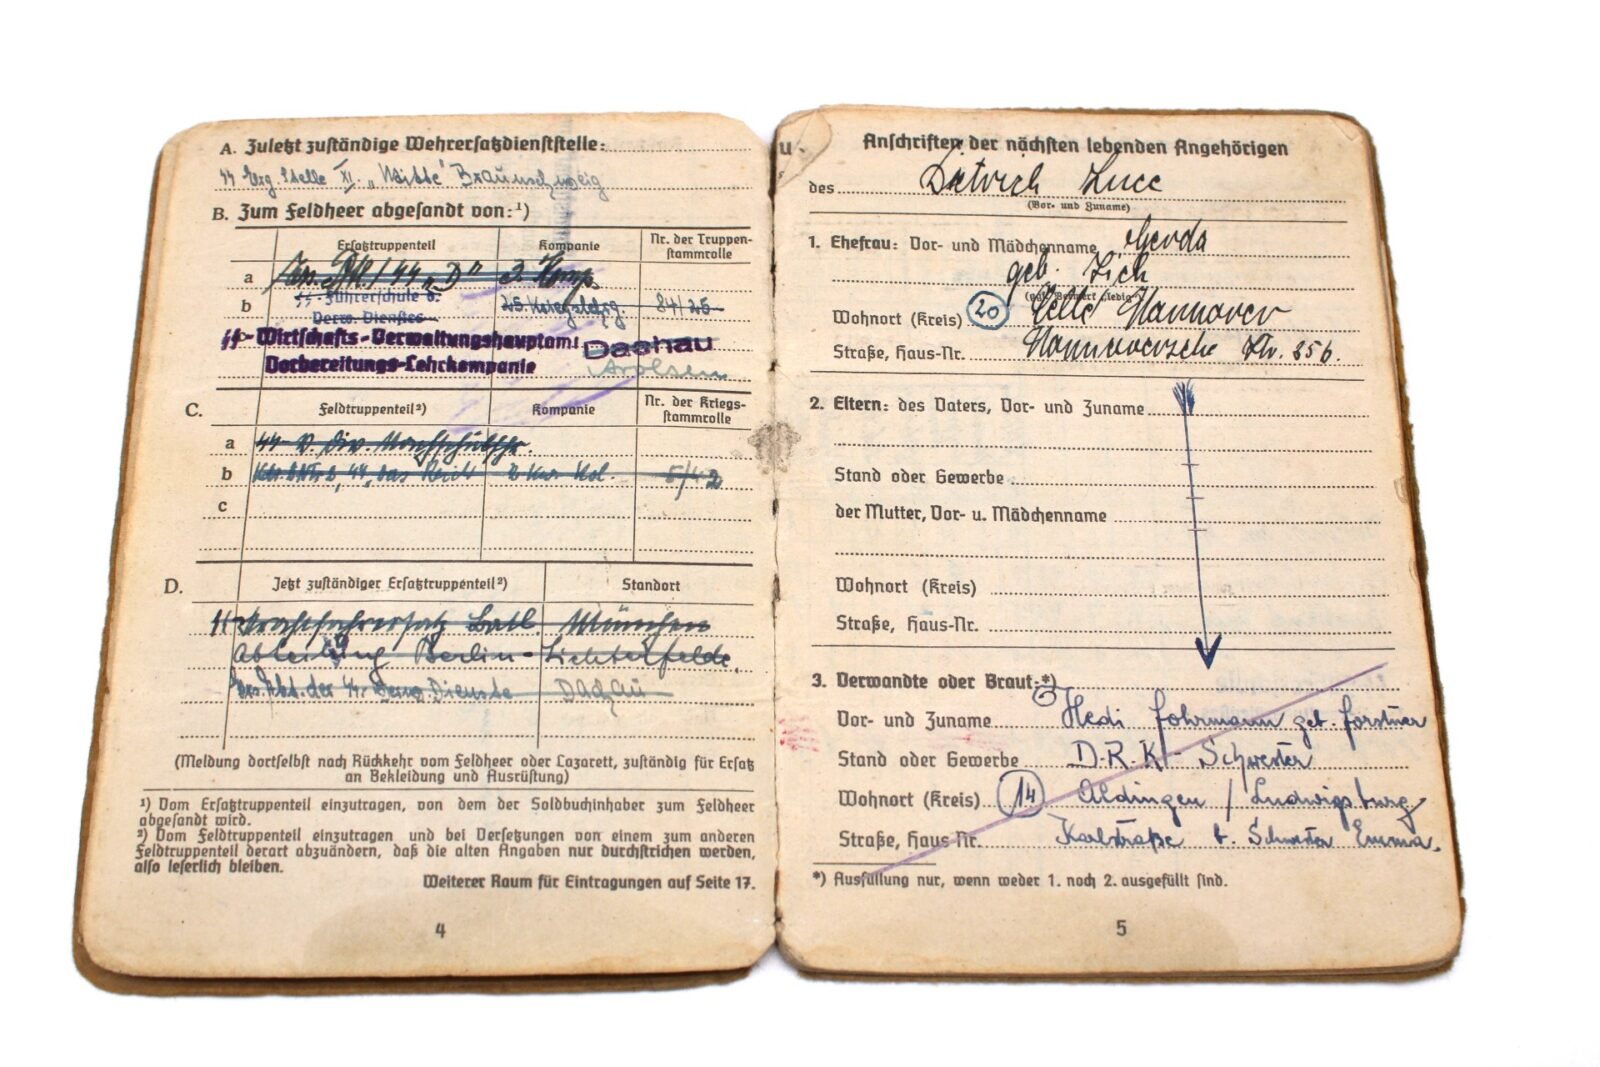 A. Zuletzt zuständige Wehrersatzdienststelle:
Erg. Stelle XI. „Mitte" Braunschweig
B. Zum Feldheer abgesandt von:¹)
Ersatztruppenteil Kompanie Nr. der Truppenstammrolle
a „D" 3. Komp.
b SS-Führerschule d. 25. 84/25
Verw. Dienstes
SS-Wirtschafts-Verwaltungshauptamt Dachau
Vorbereitungs-Lehrkompanie Arolsen
C. Feldtruppenteil²) Kompanie Nr. der Kriegsstammrolle
a SS-V. Div.
b „das Reich 5/42
c
D. Jetzt zuständiger Ersatztruppenteil²) Standort
SS-Kraftfahrersatz Batl München
Abteilung Berlin-Lichterfelde.
Ers. Abt. der SS Verw. Dienste Dachau
(Meldung dortselbst nach Rückkehr vom Feldheer oder Lazarett, zuständig für Ersatz
an Bekleidung und Ausrüstung)
¹) Vom Ersatztruppenteil einzutragen, von dem der Soldbuchinhaber zum Feldheer
abgesandt wird.
²) Vom Feldtruppenteil einzutragen und bei Versetzungen von einem zum anderen
Feldtruppenteil derart abzuändern, daß die alten Angaben nur durchstrichen werden,
also leserlich bleiben.
Weiterer Raum für Eintragungen auf Seite 17.
4
u.
Anschriften der nächsten lebenden Angehörigen
des Dietrich
(Vor- und Zuname)
1. Ehefrau: Vor- und Mädchenname Gerda
geb.
Wohnort (Kreis) 20 Celle Hannover
Straße, Haus-Nr. Hannoversche Str.
2. Eltern: des Vaters, Vor- und Zuname
Stand oder Gewerbe
der Mutter, Vor- u. Mädchenname
Wohnort (Kreis)
Straße, Haus-Nr.
3. Verwandte oder Braut:*)
Vor- und Zuname Hedi Fohrmann geb. Forstner
Stand oder Gewerbe D.R.K. Schwester
Wohnort (Kreis) 14 Aldingen / Ludwigsburg
Straße, Haus-Nr. Karlstraße b. Schwester Emma.
*) Ausfüllung nur, wenn weder 1. noch 2. ausgefüllt sind.
5